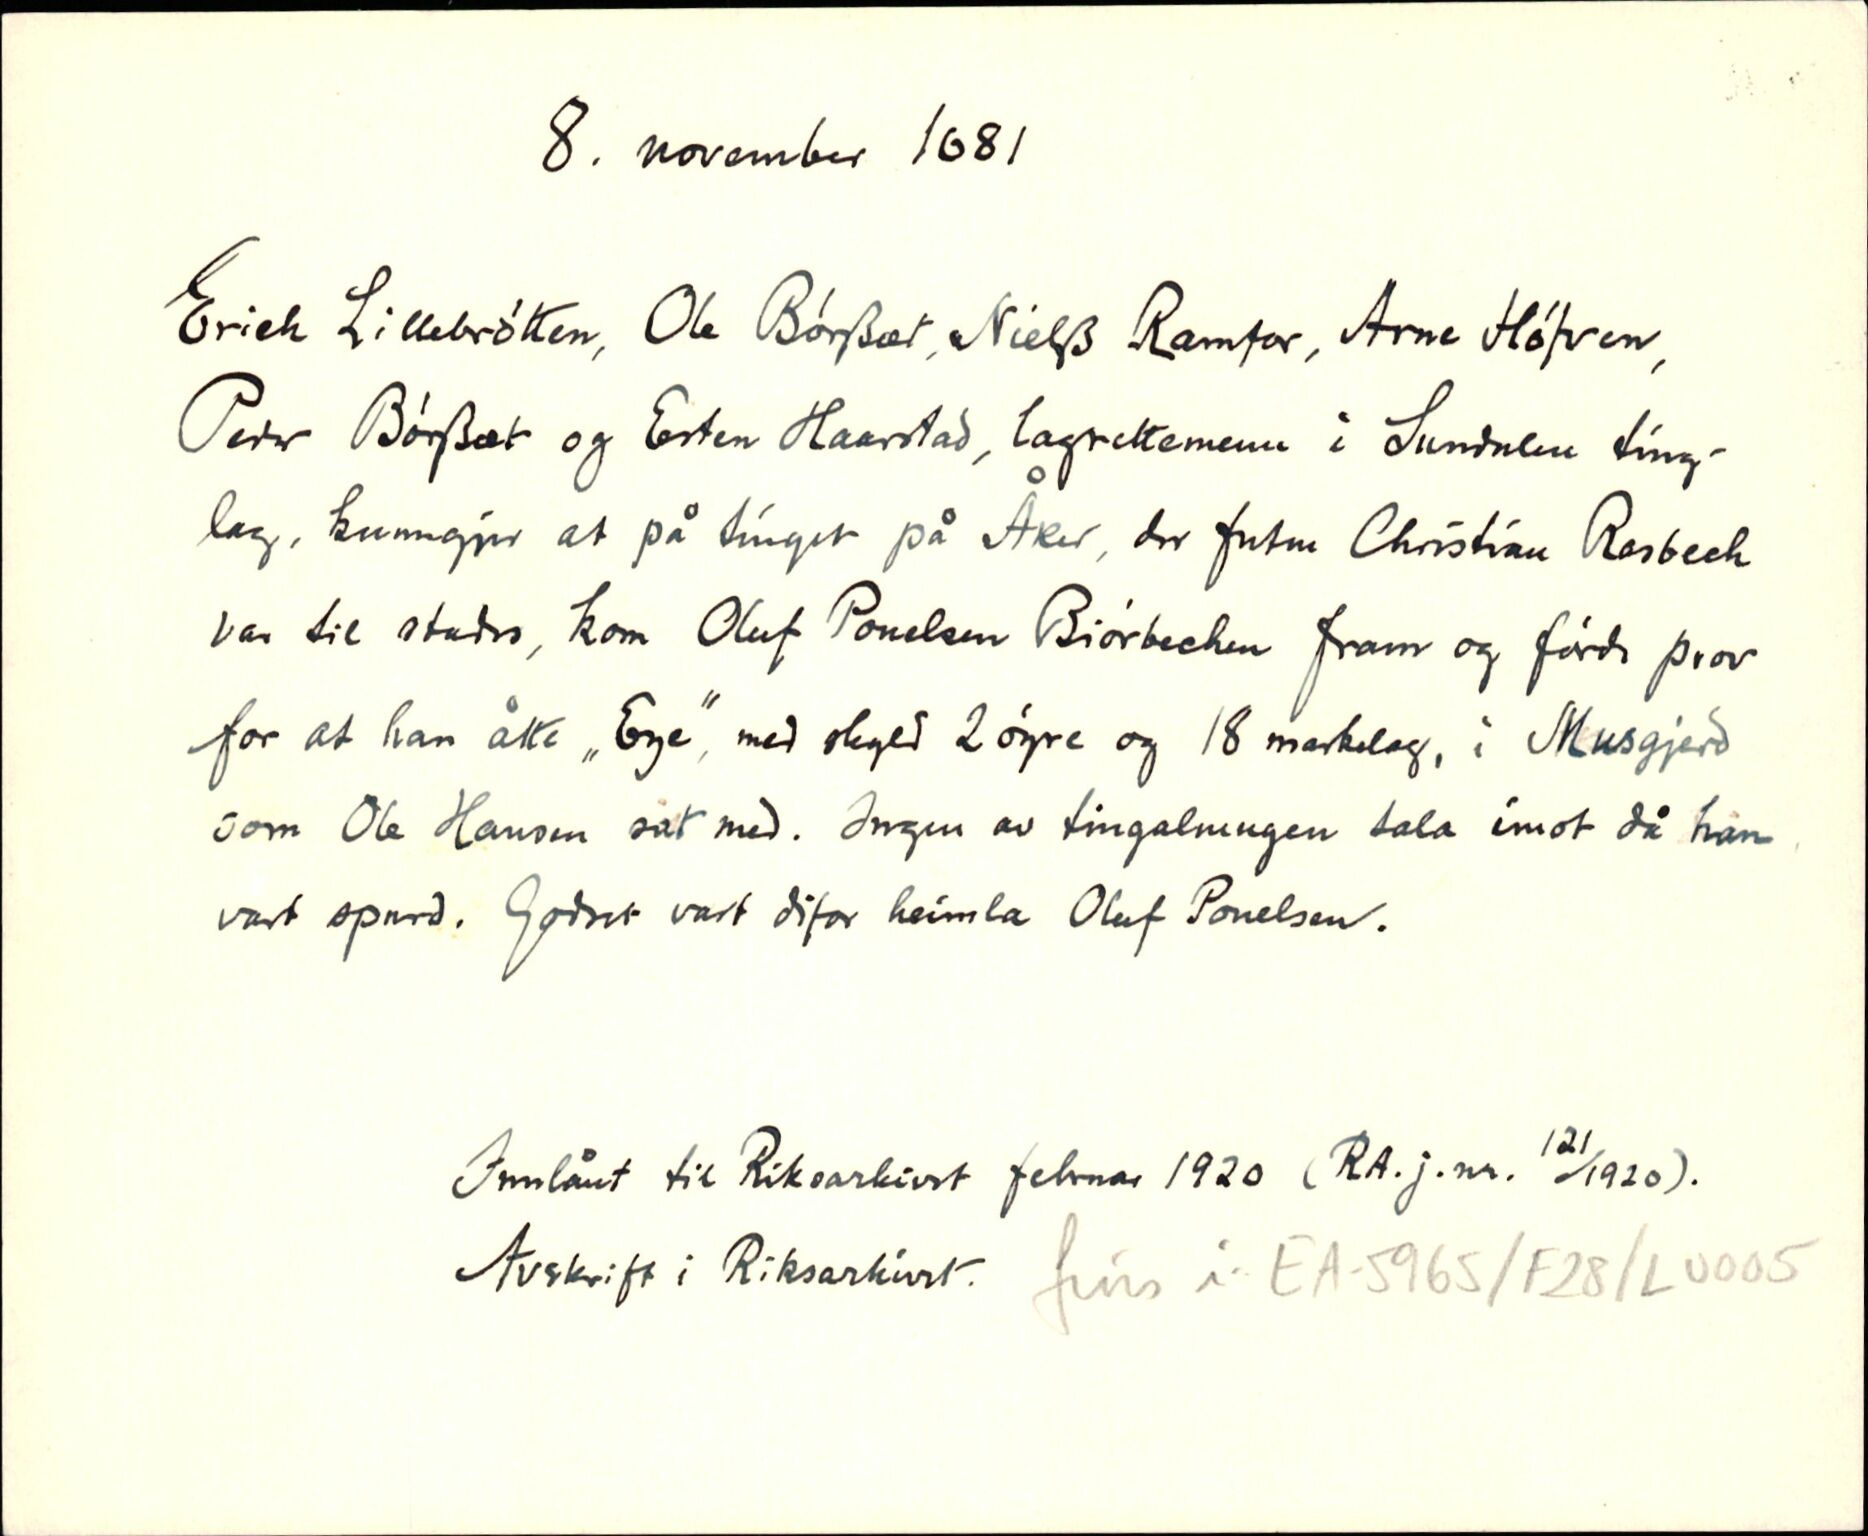 8. november 1681
Erich Lillebrötten, Ole Börßæt, Nielß Ramfor, Arne Höfven,
Peder Börßæt og Esten Haarstad, lagrettemenn i Sundalen ting-
lag, kunngjer at på tinget på Åker, der futen Christian Rasbech
var til stades, kom Oluf Pouelsen Biörbechen fram og förde prov
for at han åtte „Eye", med skyld 2 öyre og 18 markelag, i Musgjerd
som Ole Hansen sat med. Ingen av tingalmugen tala imot då han
vart spurd. Godset vart difor heimla Oluf Pouelsen.
Innlånt til Riksarkivet februar 1920 (RA. j. nr. 121/1920).
Avskrift i Riksarkivet. fins i EA-5965/F28/L0005